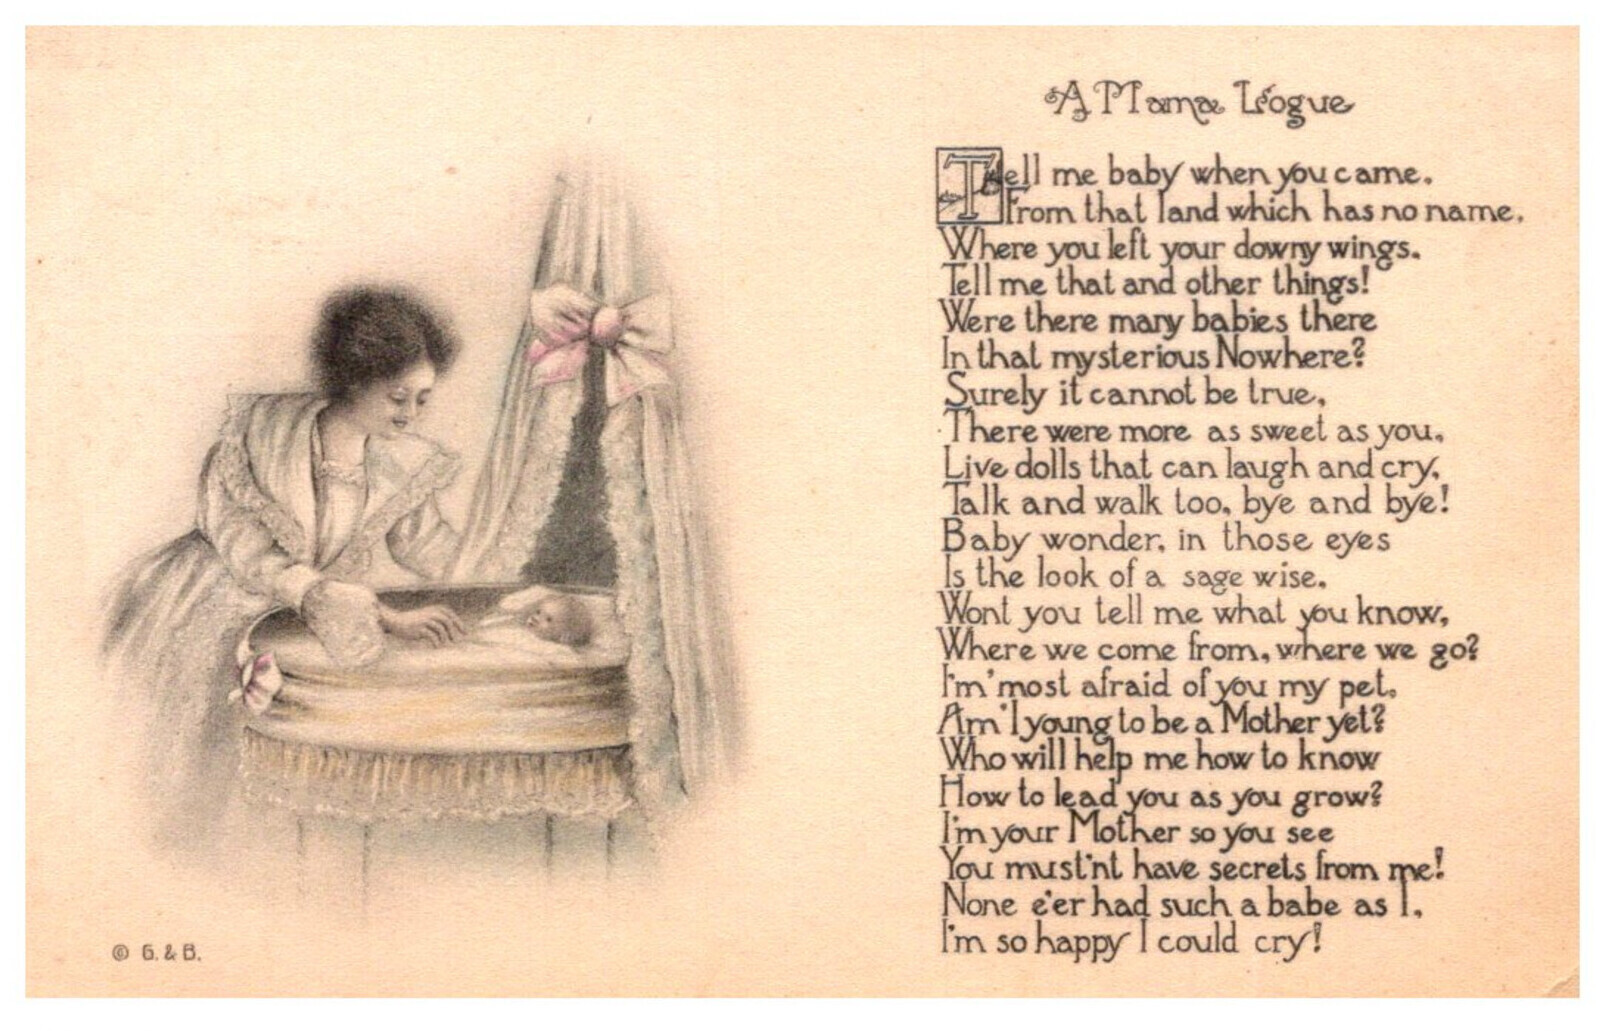 A Mama Logue
Tell me baby when you came.
From that land which has no name,
Where you left your downy wings.
Tell me that and other things!
Were there many babies there
In that mysterious Nowhere?
Surely it cannot be true,
There were more as sweet as you,
Live dolls that can laugh and cry,
Talk and walk too, bye and bye!
Baby wonder, in those eyes
Is the look of a sage wise.
Wont you tell me what you know,
Where we come from, where we go?
I'm 'most afraid of you my pet,
Am' I young to be a Mother yet?
Who will help me how to know
How to lead you as you grow?
I'm your Mother so you see
You must'nt have secrets from me!
None e'er had such a babe as I,
I'm so happy I could cry!
© G. & B.